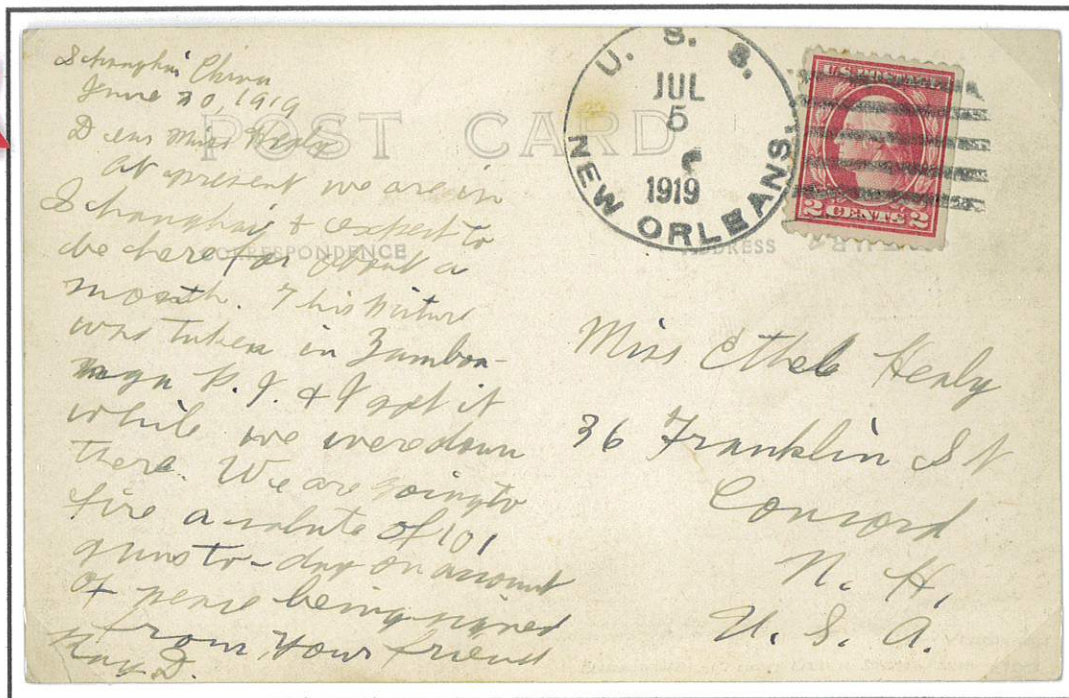 Schanghai China
June 30, 1919
Dear Miss Healy
At present we are in
Schanghai & expect to
be here for about a
month. This picture
was taken in Zamboa-
nga P.I. & I got it
while we were down
there. We are going to
fire a salute of 101
guns to-day on account
of peace being signed
From Your friend
Ray D.
POST CARD
CORRESPONDENCE
ADDRESS
U. S. S.
JUL
5
1919
NEW ORLEANS.
U.S. POSTAGE
2 CENTS 2
Miss Ethel Healy
36 Franklin St
Concord
N. H.
U. S. A.